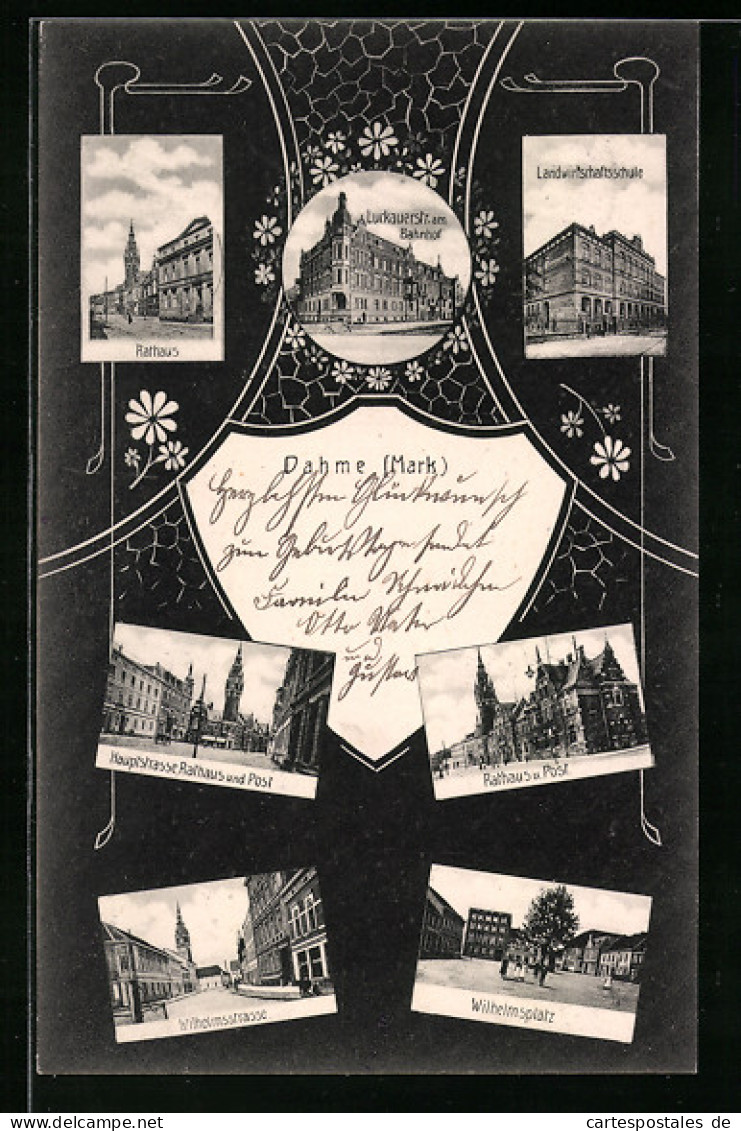 Landwirtschaftsschule
Luckauerstr. am
Bahnhof
Rathaus
Dahme (Mark)
Herzlichsten Glückwunsch
zum Geburtstage sendet
Familie
Otto
und
Gustav
Hauptstrasse, Rathaus und Post
Rathaus u. Post
Wilhelmsstrasse
Wilhelmsplatz
cartespostales de